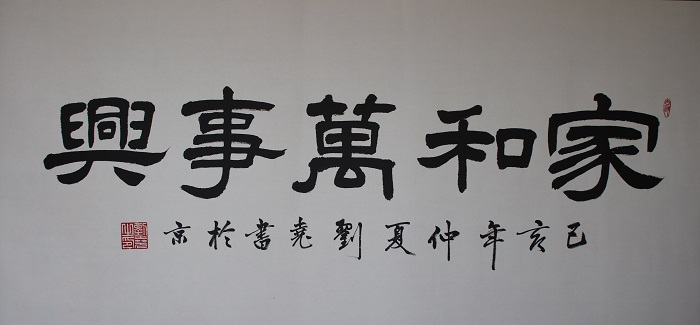 家和萬事興
己亥年仲夏劉堯書於京